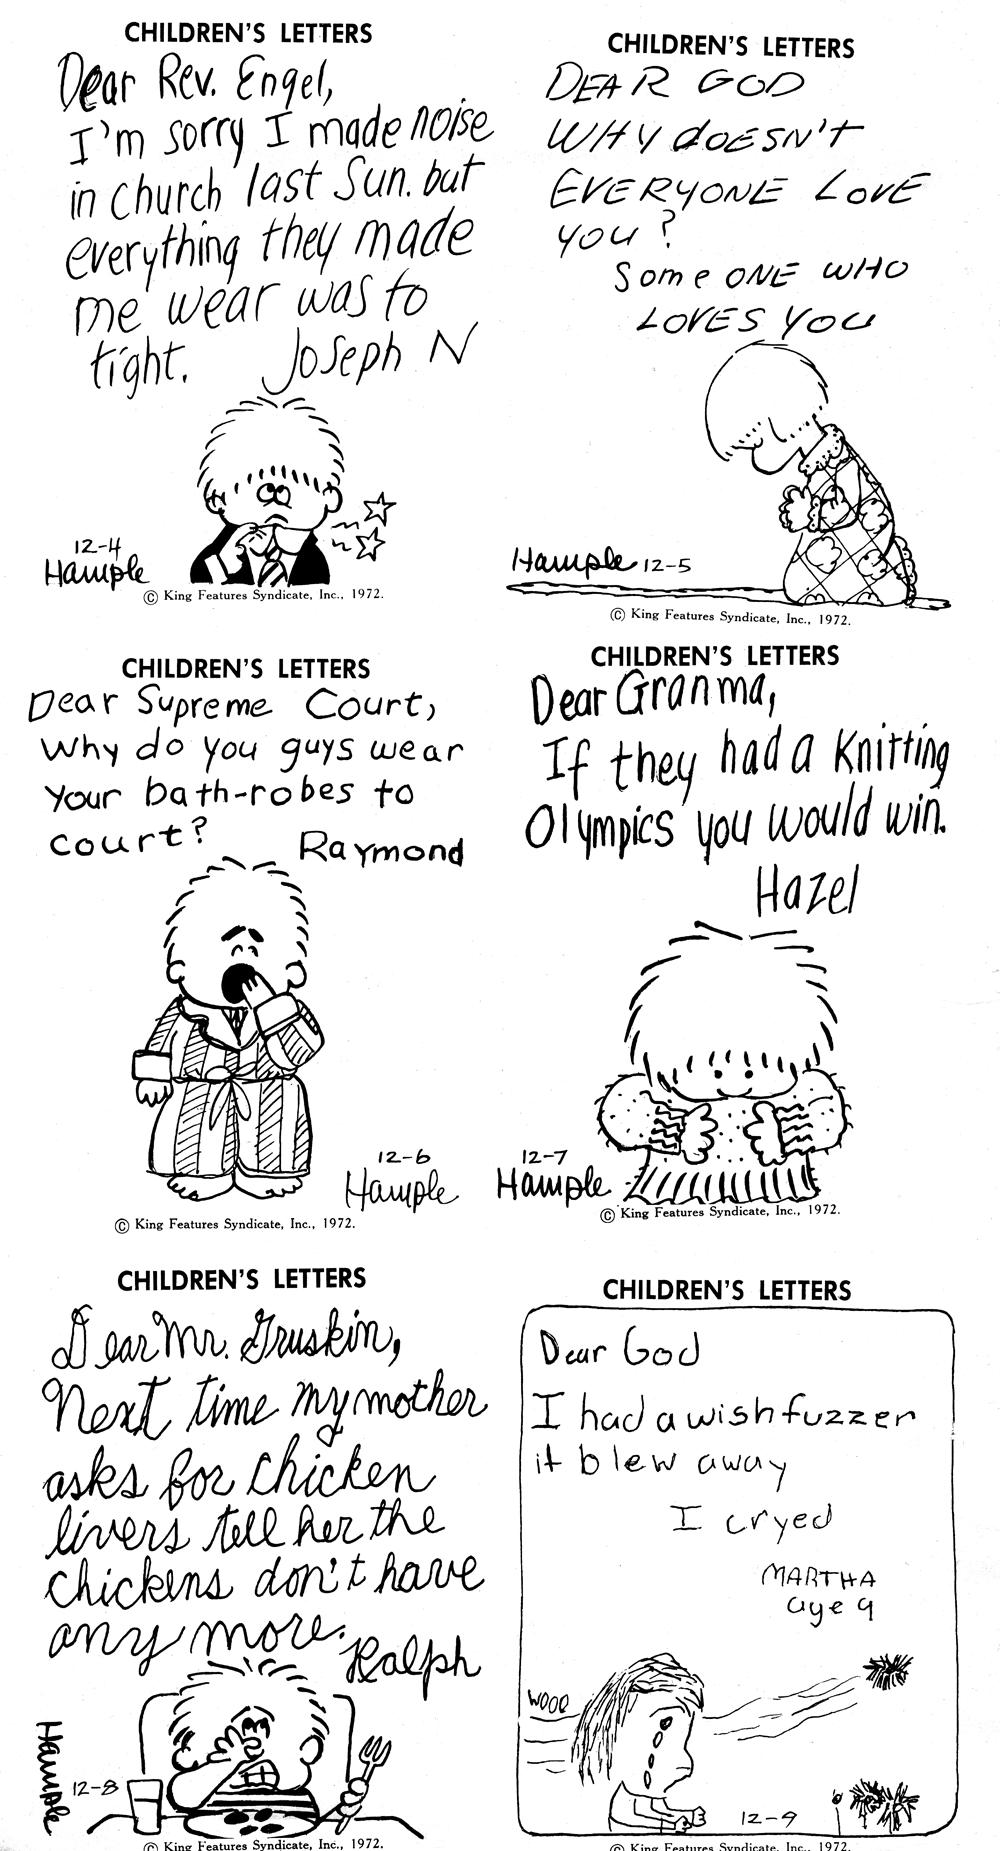 CHILDREN'S LETTERS
Dear Rev. Engel,
I'm sorry I made noise
in church last Sun. but
everything they made
me wear was to
tight. Joseph N
12-4
Hample
© King Features Syndicate, Inc., 1972.
CHILDREN'S LETTERS
DEAR GOD
WHY doESN'T
EVERYONE LOVE
YOU?
Some ONE WHO
LOVES YOU
Hample 12-5
© King Features Syndicate, Inc., 1972.
CHILDREN'S LETTERS
Dear Supreme Court,
Why do you guys wear
your bath-robes to
court? Raymond
12-6
Hample
© King Features Syndicate, Inc., 1972.
CHILDREN'S LETTERS
Dear Granma,
If they had a Knitting
Olympics you would win.
Hazel
12-7
Hample
© King Features Syndicate, Inc., 1972.
CHILDREN'S LETTERS
Dear Mr. Gruskin,
Next time my mother
asks for chicken
livers tell her the
chickens don't have
any more.
Ralph
Hample
12-8
© King Features Syndicate, Inc., 1972.
CHILDREN'S LETTERS
Dear God
I had a wish fuzzer
it blew away
I cryed
MARTHA
age 9
WOOO
12-9
© King Features Syndicate, Inc., 1972.